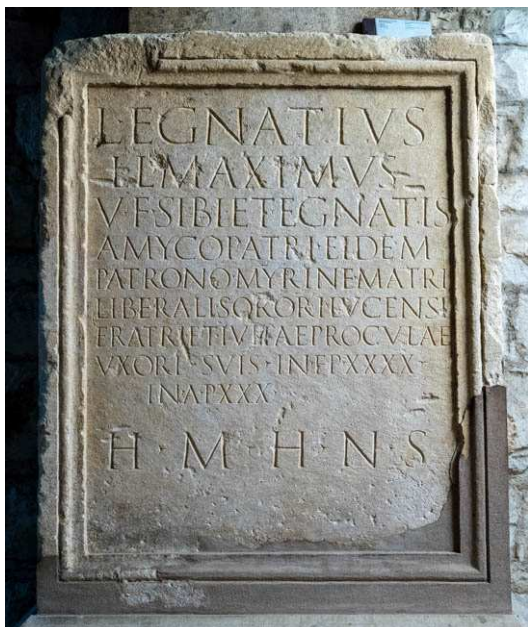 L·EGNATIVS
FL·MAXIMVS
V·F·SIBI ET EGNATIS
AMYCO PATRI·EIDEM
PATRONO MYRINE MATRI
LIBERALI SORORI LVCENSI
FRATRI ET PROCVLAE
VXORI·SVIS·IN·F·P·XXXX
IN·A·P·XXX
H·M·H·N·S